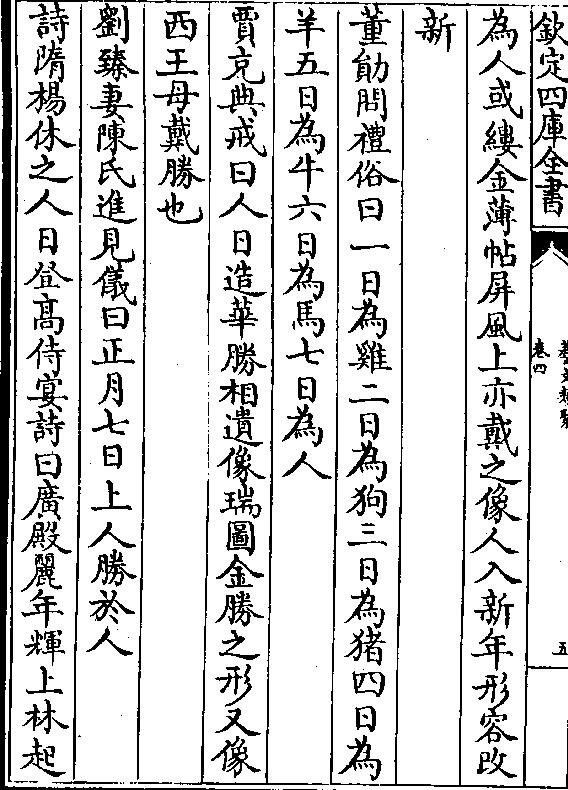 欽定四庫全書
卷四
五
為人或縷金薄帖屏風上亦戴之像人入新年形容改
新
董勛問禮俗曰一日為雞二日為狗三日為猪四日為
羊五日為牛六日為馬七日為人
賈充典戒曰人日造華勝相遺像瑞圖金勝之形又像
西王母戴勝也
劉臻妻陳氏進見儀曰正月七日上人勝於人
詩隋楊休之人日登髙侍宴詩曰廣殿麗年輝上林起